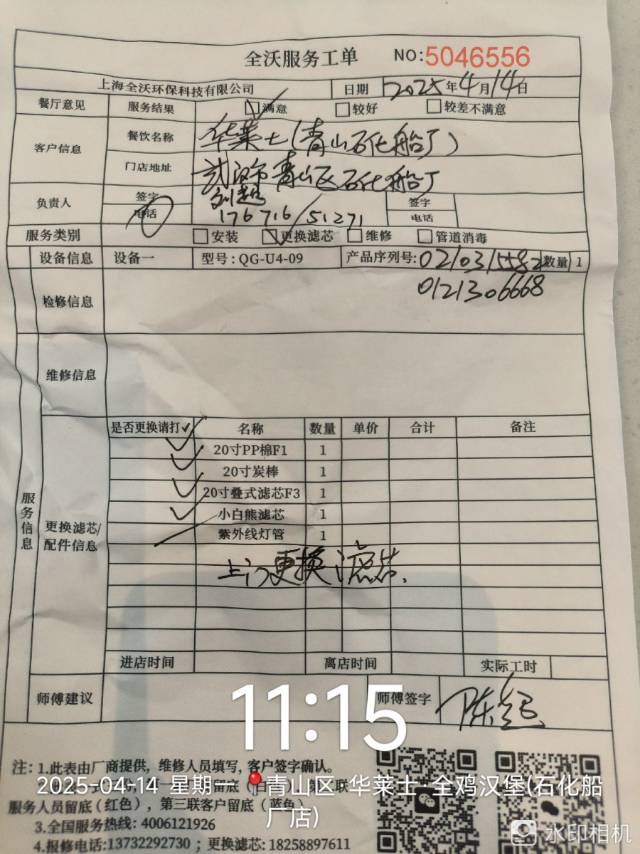 全沃服务工单 NO:5046556
上海全沃环保科技有限公司 日期 2025年4月14日
餐厅意见 服务结果 满意 较好 较差不满意
客户信息 餐饮名称 华莱士(青山石化船厂)
门店地址 武汉市青山区石化船厂
负责人 签字 签字
电话 176716/51271 电话
服务类别 安装 更换滤芯 维修 管道消毒
设备信息 设备一 型号: QG-U4-09 产品序列号: 0210315582 数量 1
0121306668
检修信息
维修信息
服务信息
更换滤芯/配件信息
是否更换请打✓ 名称 数量 单价 合计 备注
✓ 20寸PP棉F1 1
✓ 20寸炭棒 1
✓ 20寸叠式滤芯F3 1
✓ 小白熊滤芯 1
紫外线灯管 1
上门更换滤芯.
进店时间 离店时间 实际工时
师傅建议 师傅签字
11:15
注: 1.此表由厂商提供, 维修人员填写, 客户签字确认。
2025-04-14 星期一 青山区·华莱士·全鸡汉堡(石化船厂店)
服务人员留底(红色), 第三联客户留底(蓝色)
3.全国服务热线: 4006121926
4.报修电话:13732292730; 更换滤芯: 18258897611
水印相机